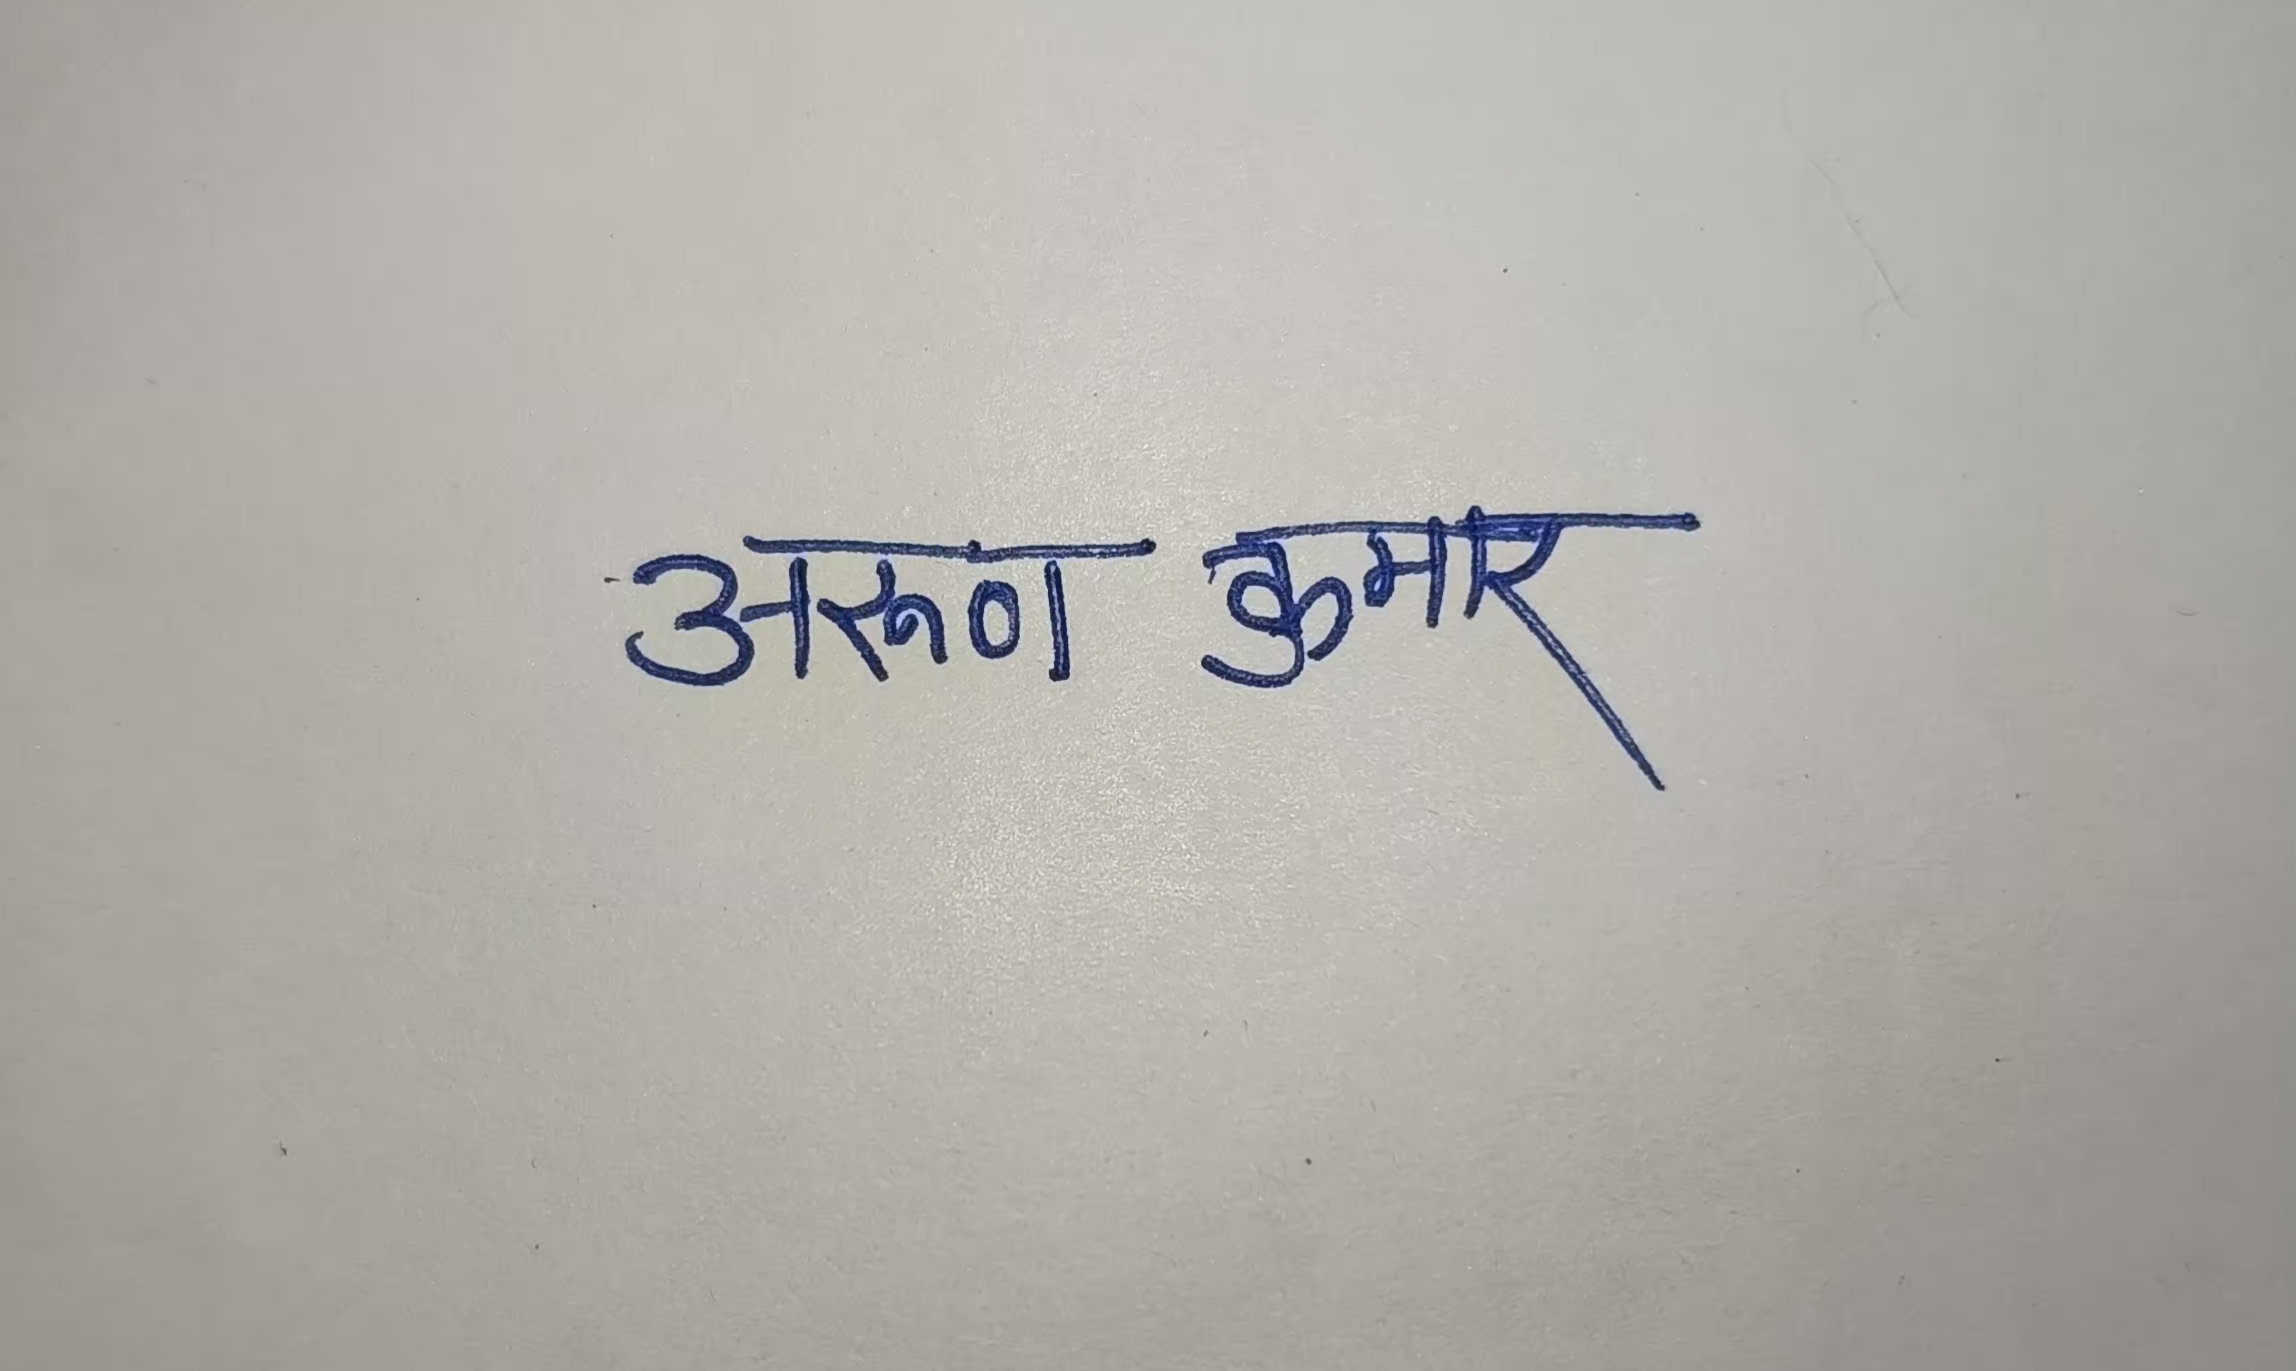 अरूण कुमार